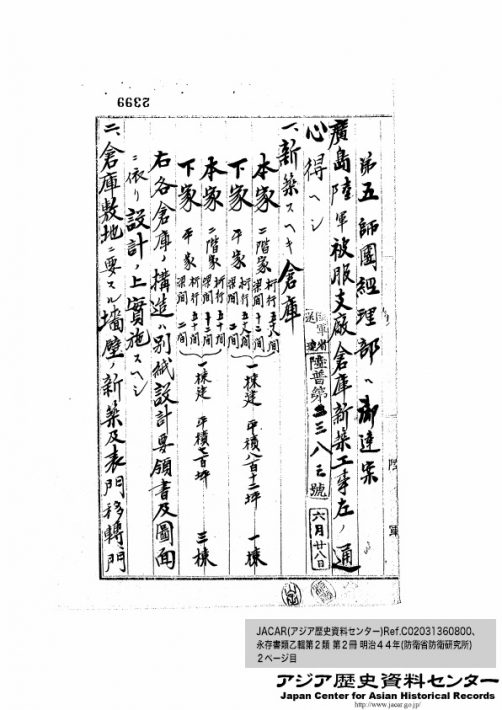 2399
第五師團經理部ヘ御達案
廣島陸軍被服支廠倉庫新築工事左ノ通
心得ヘシ
陸軍省
送達
陸普第二三八三號
六月廿八日
一、新築スヘキ倉庫
本家 二階家 桁行五十八間 梁間十二間
下家 平家 桁行五十八間 梁間二間
一棟建 平積八百十二坪 一棟
本家 二階家 桁行五十間 梁間十二間
下家 平家 桁行五十間 梁間二間
一棟建 平積七百坪 三棟
右各倉庫ノ構造ハ別紙設計要領書及圖面
ニ依リ設計ノ上實施スヘシ
二、倉庫敷地ニ要スル墻壁ノ新築及表門移轉門
陸軍
JACAR(アジア歴史資料センター)Ref.C02031360800、
永存書類乙輯第2類 第2冊 明治44年(防衛省防衛研究所)
2ページ目
アジア歴史資料センター
Japan Center for Asian Historical Records
http://www.jacar.go.jp/